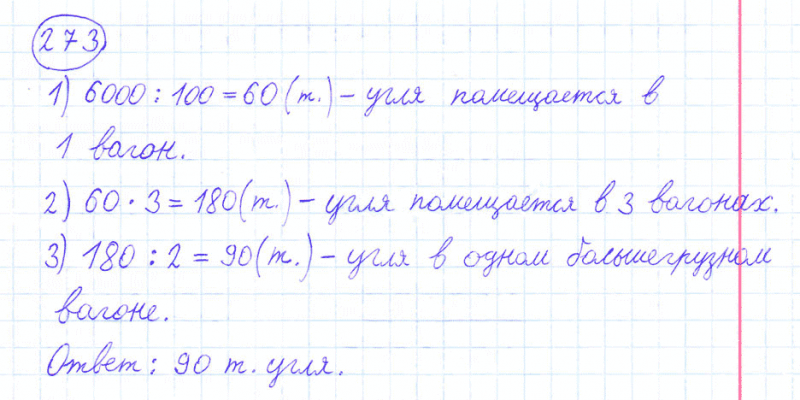 273
1) 6000 : 100 = 60 (т.) – угля помещается в
1 вагон.
2) 60 · 3 = 180 (т.) – угля помещается в 3 вагонах.
3) 180 : 2 = 90 (т.) – угля в одном большегрузном
вагоне.
Ответ: 90 т. угля.